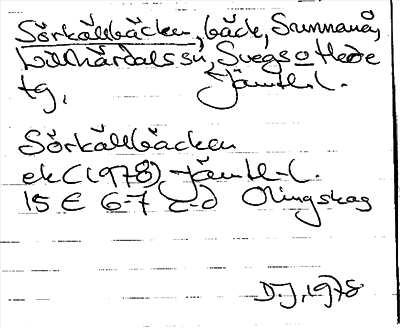 Sörkällbäcken, bäck, Sunnanåy
Lillhärdals sn, Svegs o Hede
tg, Jämtl.l.
Sörkällbäcken
ek (1978) Jämtl.l.
15 E 6-7 c-d Olingskog
D.J, 1978